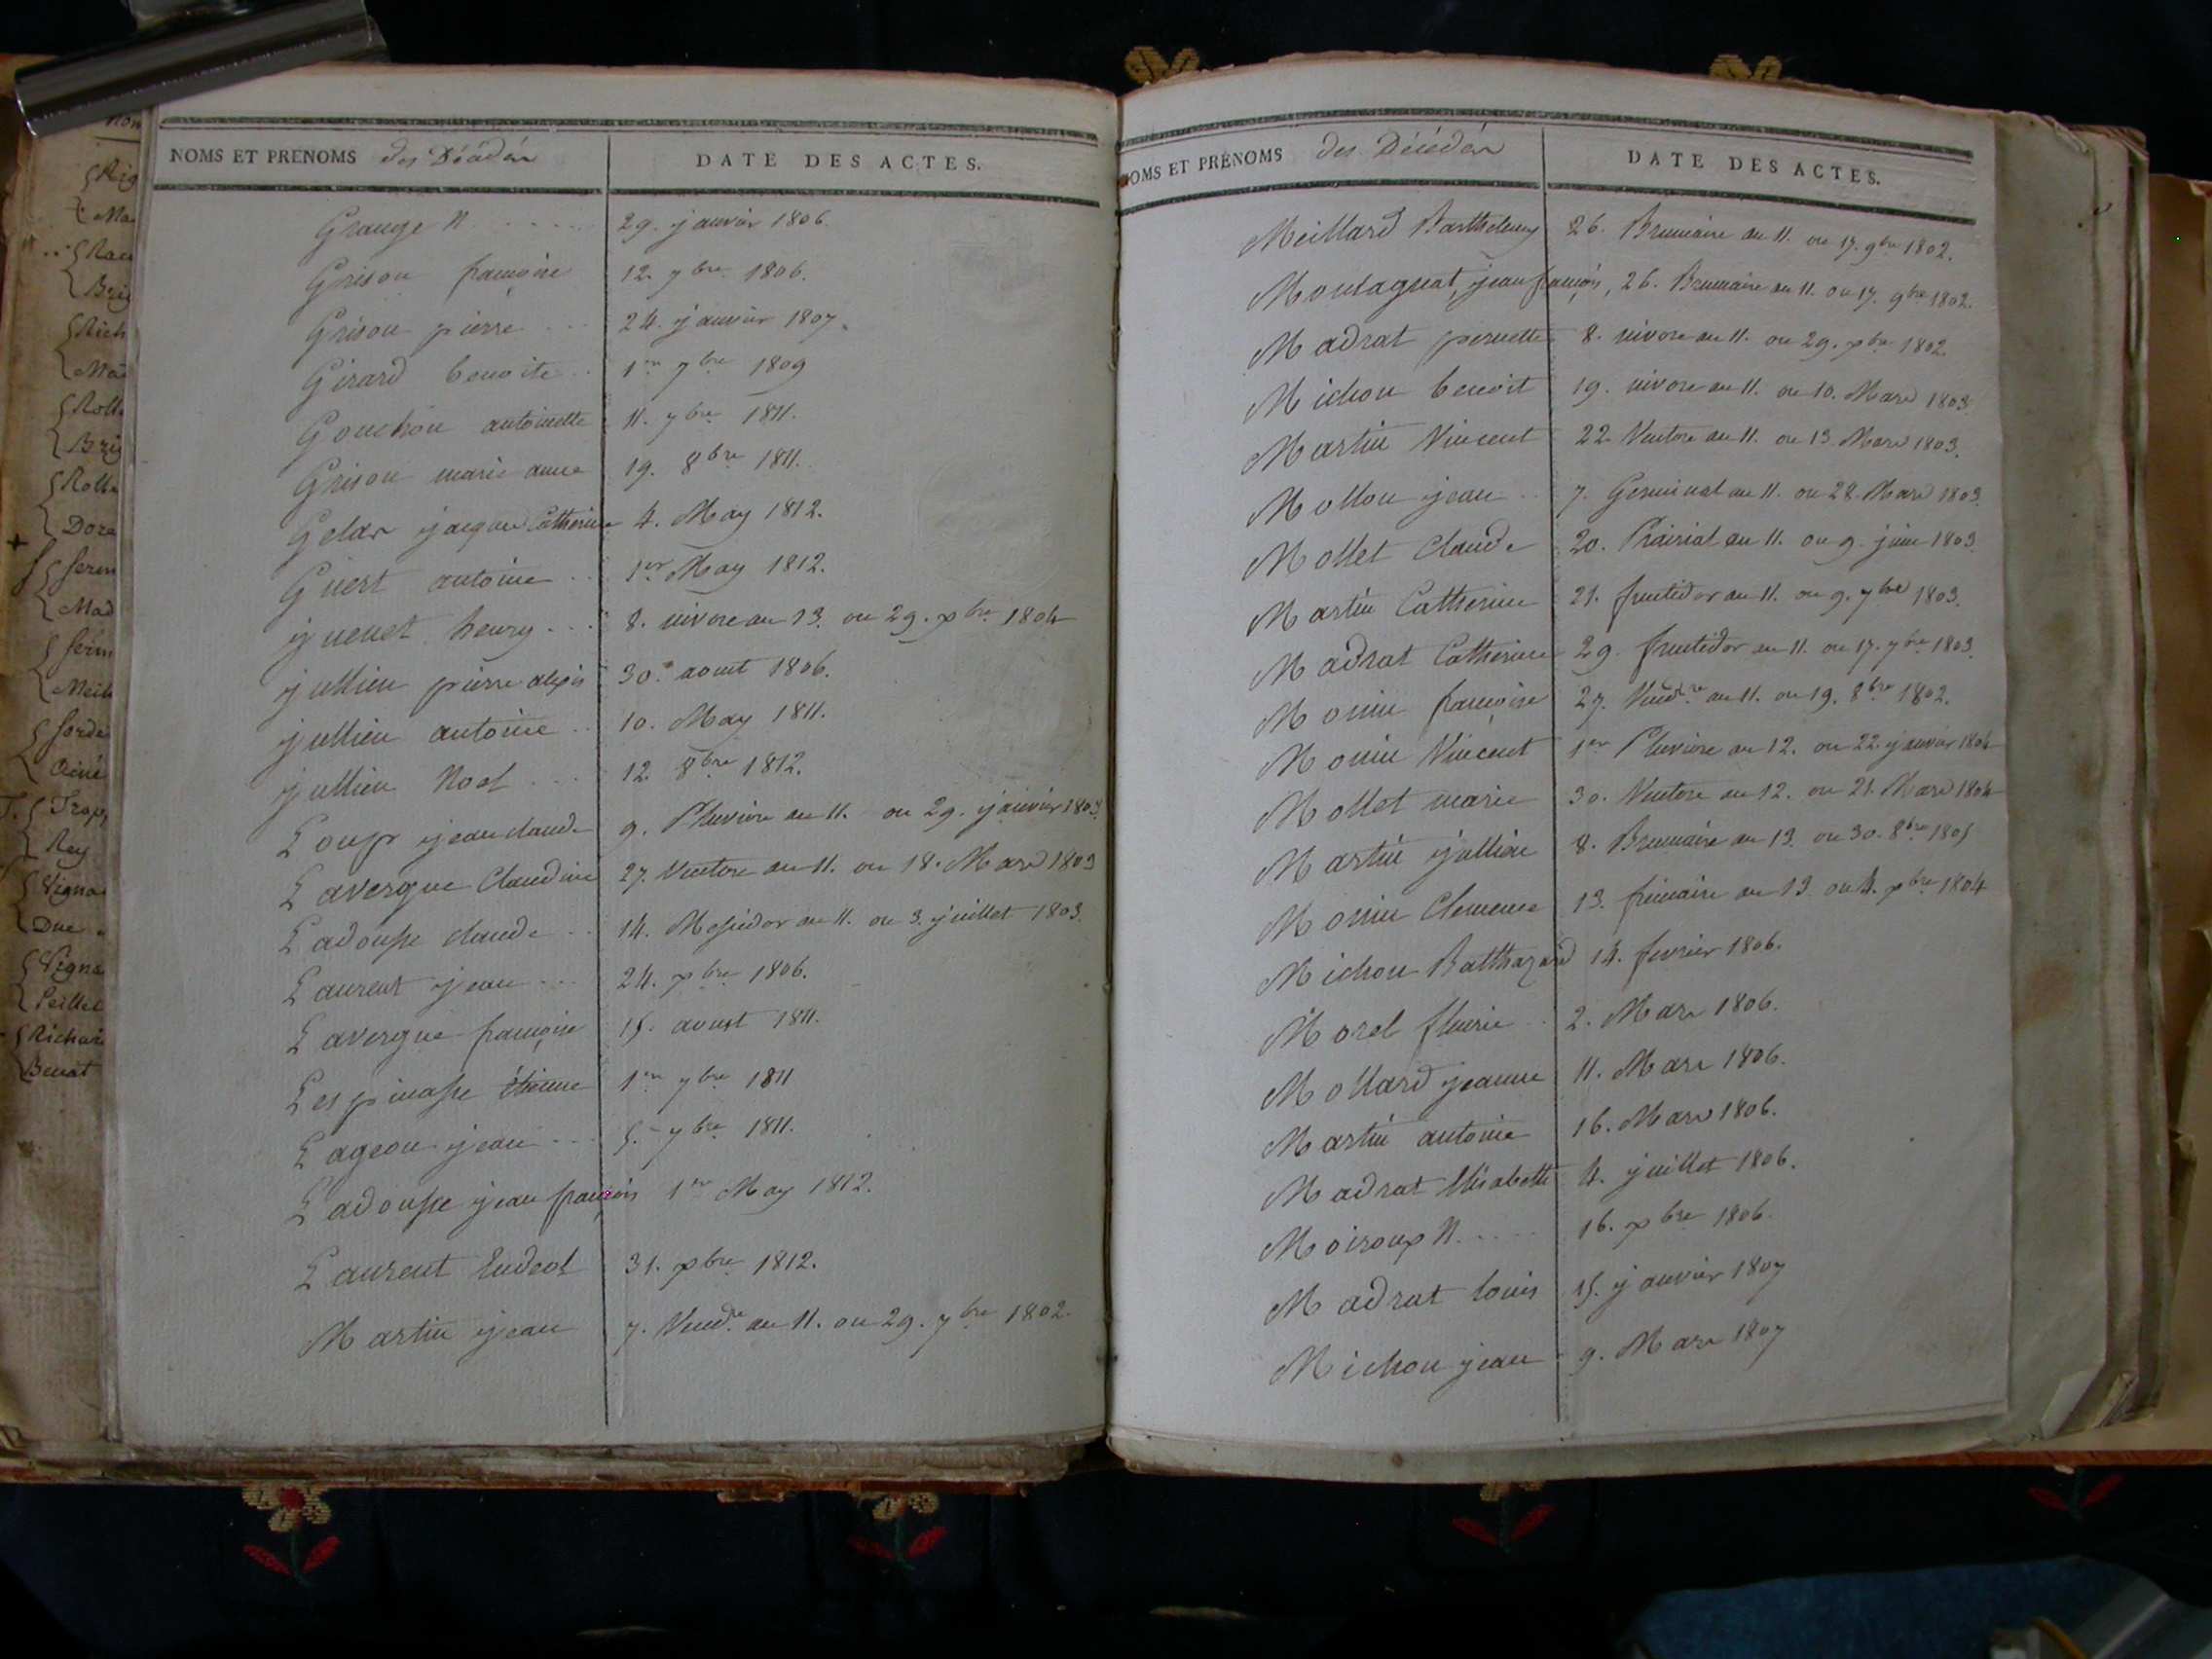 NOMS ET PRENOMS des Décédés DATE DES ACTES.
Grange N ..... 29. janvier 1806.
Grison françoise 12. 7bre 1806.
Grison pierre ... 24. janvier 1807.
Girard benoite .. 1er 7bre 1809
Gouchon antoinette 11. 7bre 1811.
Grison marie anne 19. 8bre 1811.
Gelas jacques Catherine 4. May 1812.
antoine .. 1er May 1812.
henry ... 8. nivose an 13. ou 29. xbre 1804
jullien pierre alexis 30. aout 1806.
jullien antoine .. 10. May 1811.
jullien Noel ... 12. 8bre 1812.
Loup jean claude 9. Pluviose an 11. ou 29. janvier 1803.
Lavergne Claudine 27. Ventose an 11. ou 18. Mars 1803
Ladousse claude .. 14. Messidor an 11. ou 3. juillet 1803.
Laurent jean ... 24. xbre 1806.
Lavergne françoise 15. aoust 1811.
Lespinasse étienne 1er 7bre 1811
Lageon jean ... 5. 7bre 1811.
Ladousse jean françois 1er May 1812.
Laurent 31. xbre 1812.
Martin jean 7. Vendre an 11. ou 29. 7bre 1802.
OMS ET PRÉNOMS des Décédés DATE DES ACTES.
Meillard Barthelemy 26. Brumaire an 11. ou 17. 9bre 1802.
Montagnat, jean françois, 26. Brumaire an 11. ou 17. 9bre 1802.
Madrat pernette 8. nivose an 11. ou 29. xbre 1802.
Michon benoit 19. nivose an 11. ou 10. Mars 1803.
Martin Vincent 22. Ventose an 11. ou 13. Mars 1803.
Mollon jean .. 7. Germinal an 11. ou 28. Mars 1803.
Mollet Claude 20. Prairial an 11. ou 9. juin 1803.
Martin Catherine 21. fructidor an 11. ou 9. 7bre 1803.
Madrat Catherine 29. fructidor an 11. ou 17. 7bre 1803.
Monin françoise 27. Vendre an 11. ou 19. 8bre 1802.
Monin Vincent 1er Pluviose an 12. ou 22. janvier 1804
Mollet marie 30. Ventose an 12. ou 21. Mars 1804
Martin jullien 8. Brumaire an 13. ou 30. 8bre 1805
Monin Clemence 13. frimaire an 13. ou 4. xbre 1804
Michon Balthazard 14. fevrier 1806.
Morel fleurie .. 2. Mars 1806.
Mollard jeanne 11. Mars 1806.
Martin antoine 16. Mars 1806.
Madrat Elisabette 4. juillet 1806.
Moiroux N. .... 16. xbre 1806.
Madrat louis 15. janvier 1807
Michon jean 9. Mars 1807
Rig
Ma
Rau
Brig
Rich
Ma
Roll
Brig
Dore
Mad
Meil
Rey
Vigna
Due
Vigna
Peillet
Richar
Benat